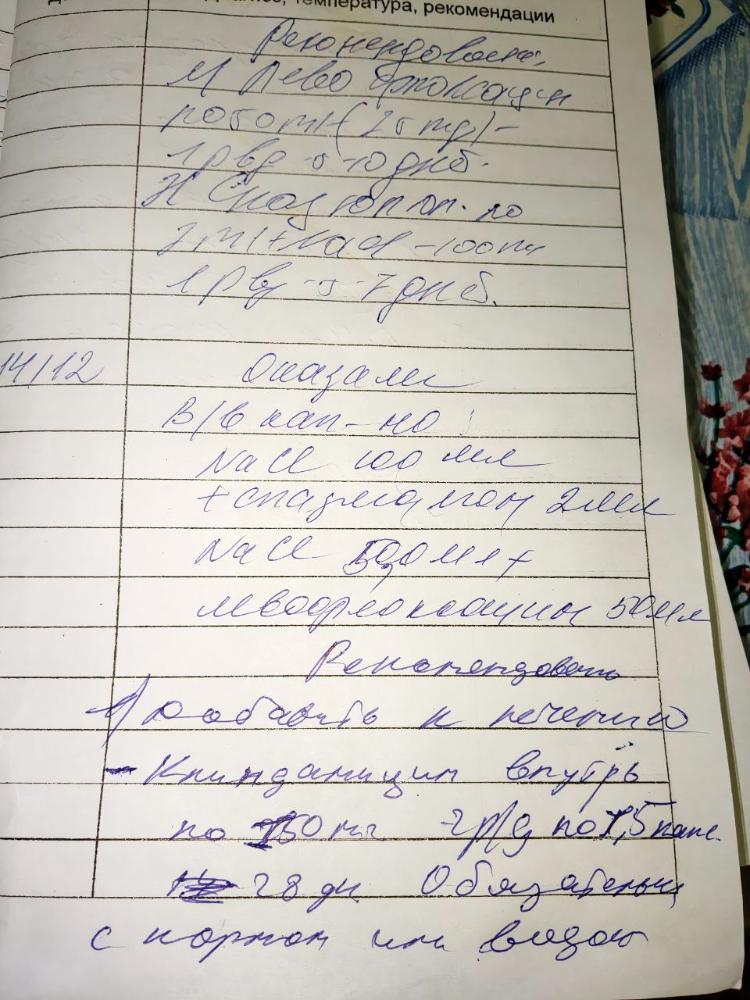 температура, рекомендации
Рекомендовано:
1) Левофлоксацин
1 р в д - 5-10 дней.
2 ml + NaCl - 100 ml
1 р в д - 5-7 дней.
14/12 Оказано
В/в кап-но:
NaCl 100 мл
+ спазмалгон 2 мл
NaCl 50 мл +
левофлоксацин 50 мл
Рекомендовано
1) добавить к лечению
- Клиндамицин внутрь
по 150 мг 2 р/д по 1,5 капс.
28 дн. Обязательно
с кормом или водой